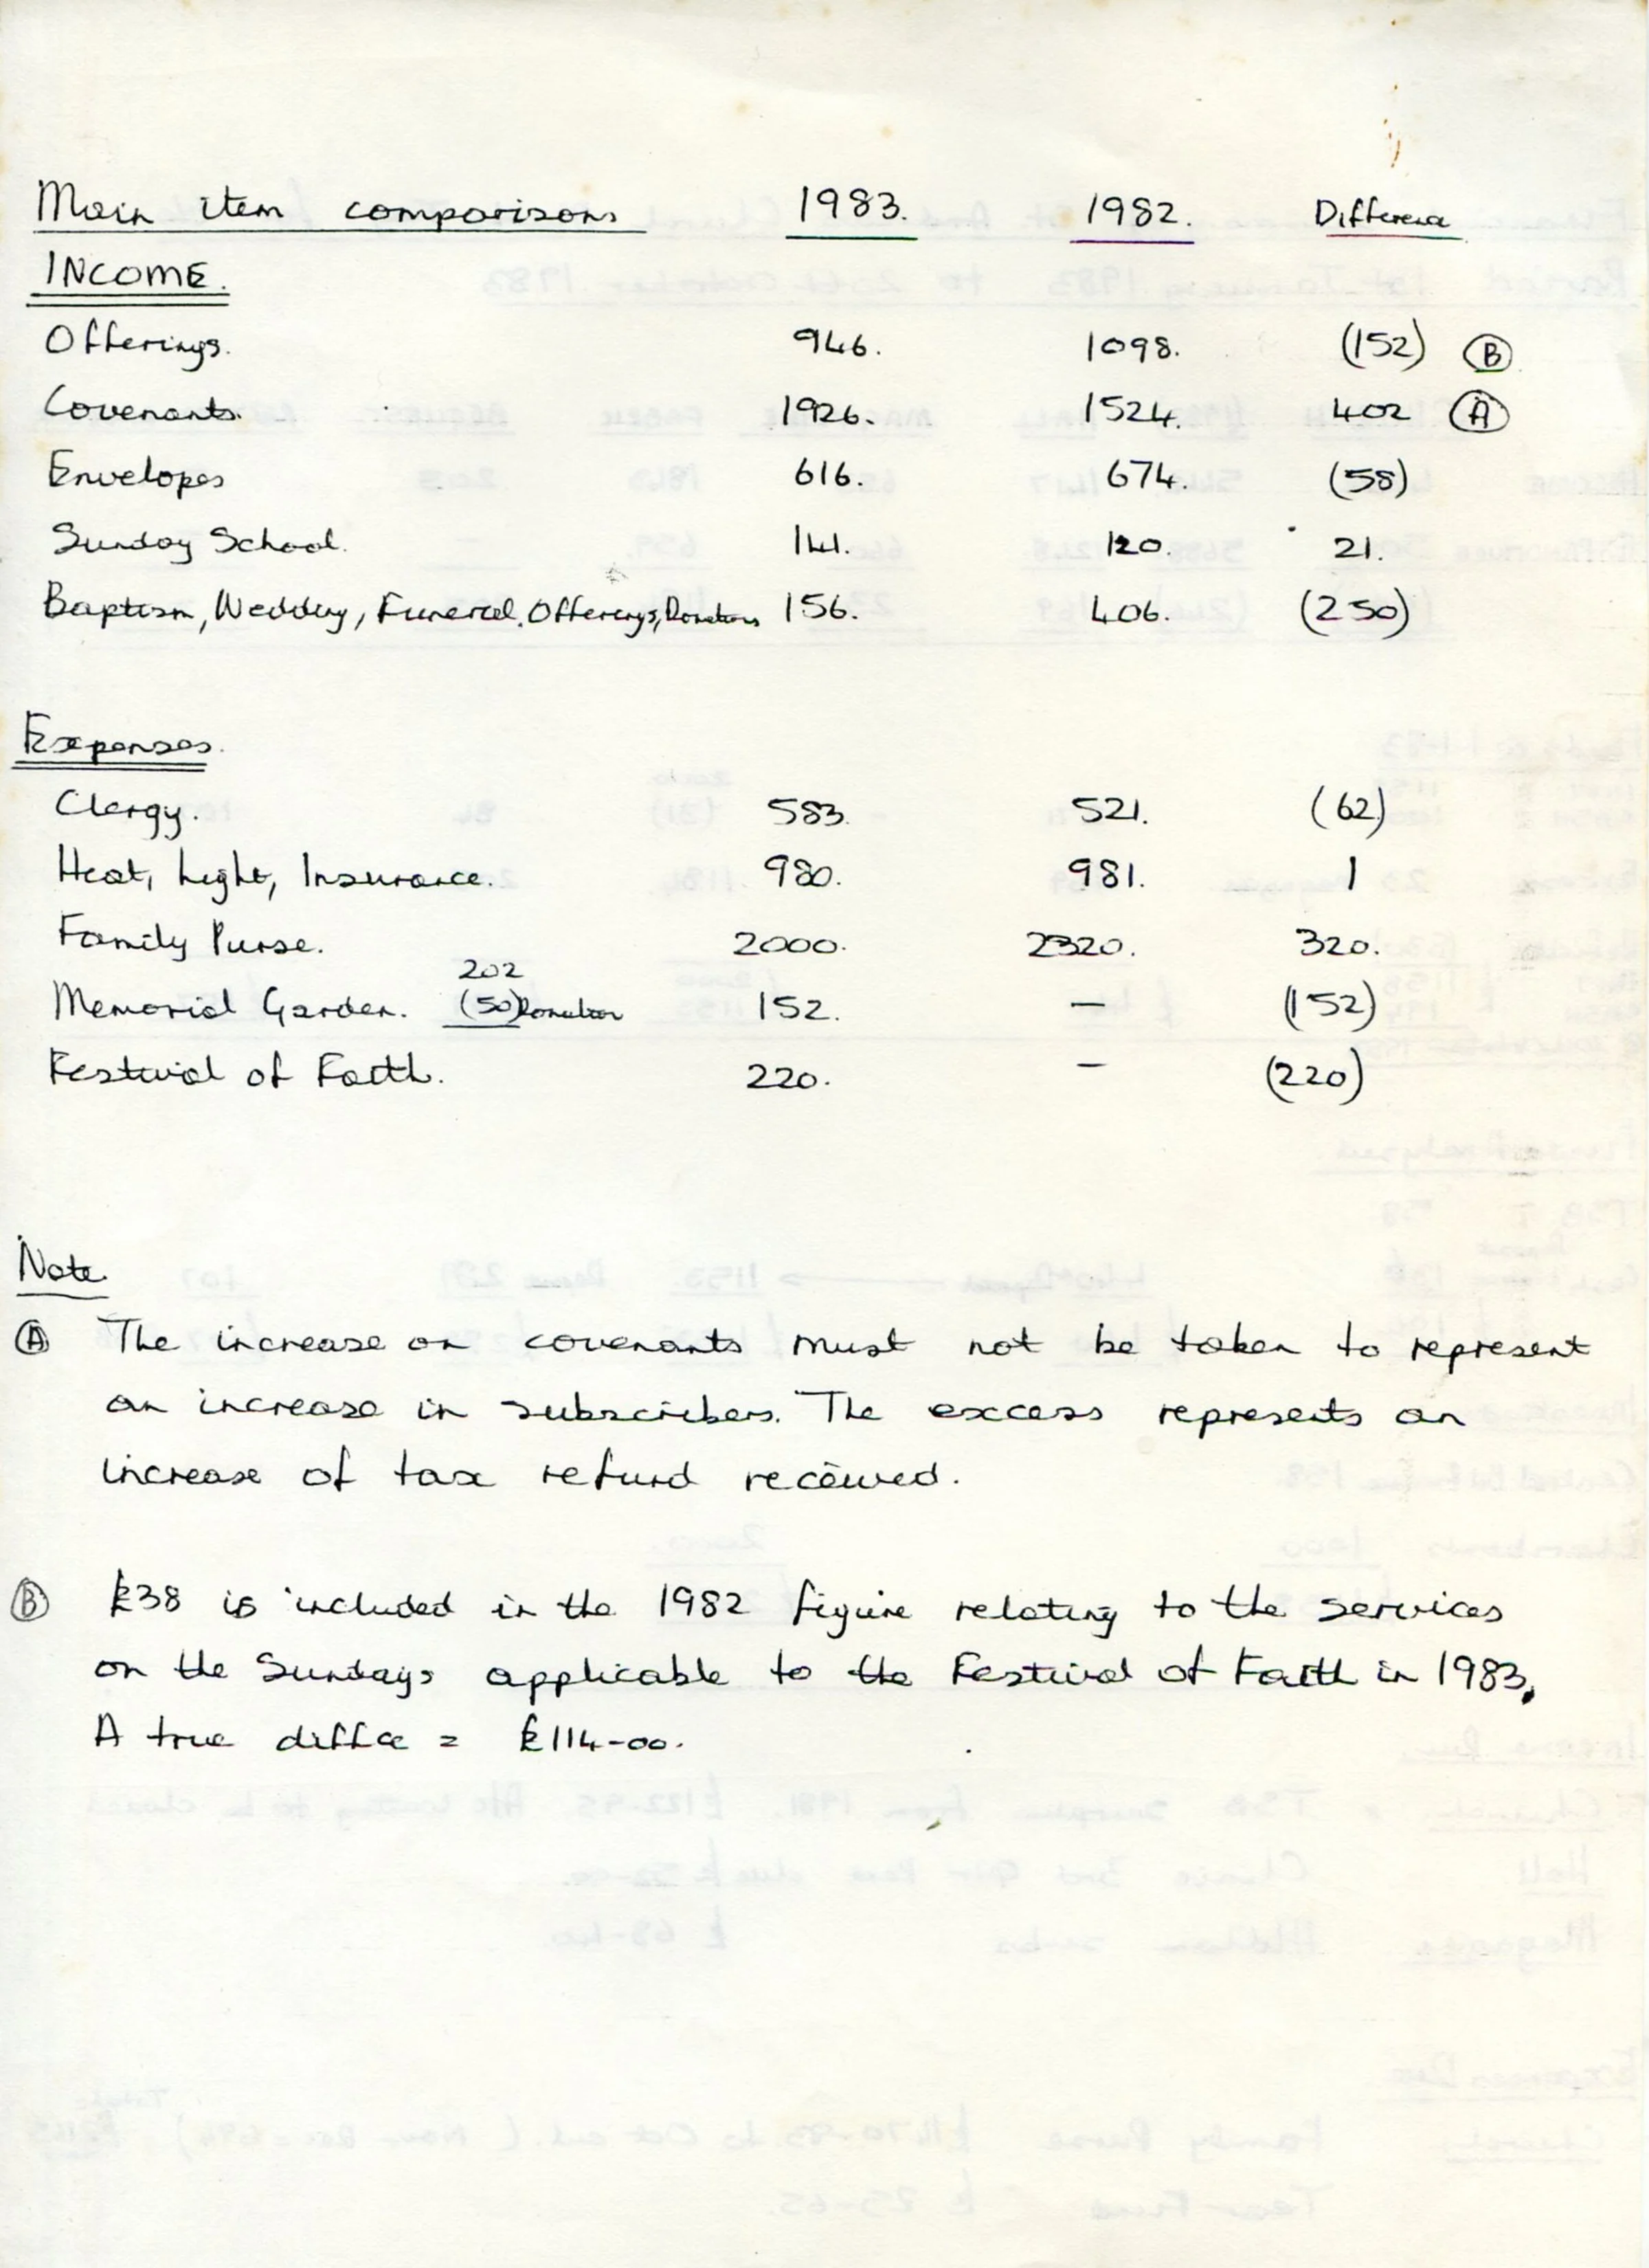 Main item comparisons 1983. 1982. Difference
INCOME.
Offerings. 946. 1098. (152) B
Covenants. 1926. 1524. 402 A
Envelopes 616. 674. (58)
Sunday School. 141. 120. 21.
Baptism, Wedding, Funeral, Offerings, Donations 156. 406. (250)
Expenses.
Clergy. 583. 521. (62)
Heat, Light, Insurance. 980. 981. 1
Family Purse. 2000. 2320. 320.
202
Memorial Garden. (50) Donation 152. — (152)
Festival of Faith. 220. — (220)
Note.
A The increase on covenants must not be taken to represent
an increase in subscribers. The excess represents an
increase of tax refund received.
B £38 is included in the 1982 figure relating to the services
on the Sundays applicable to the Festival of Faith in 1983.
A true diffce = £114-00.